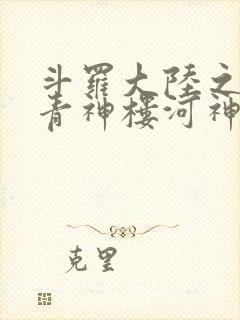 斗羅大陸之
青神樓河神
克里